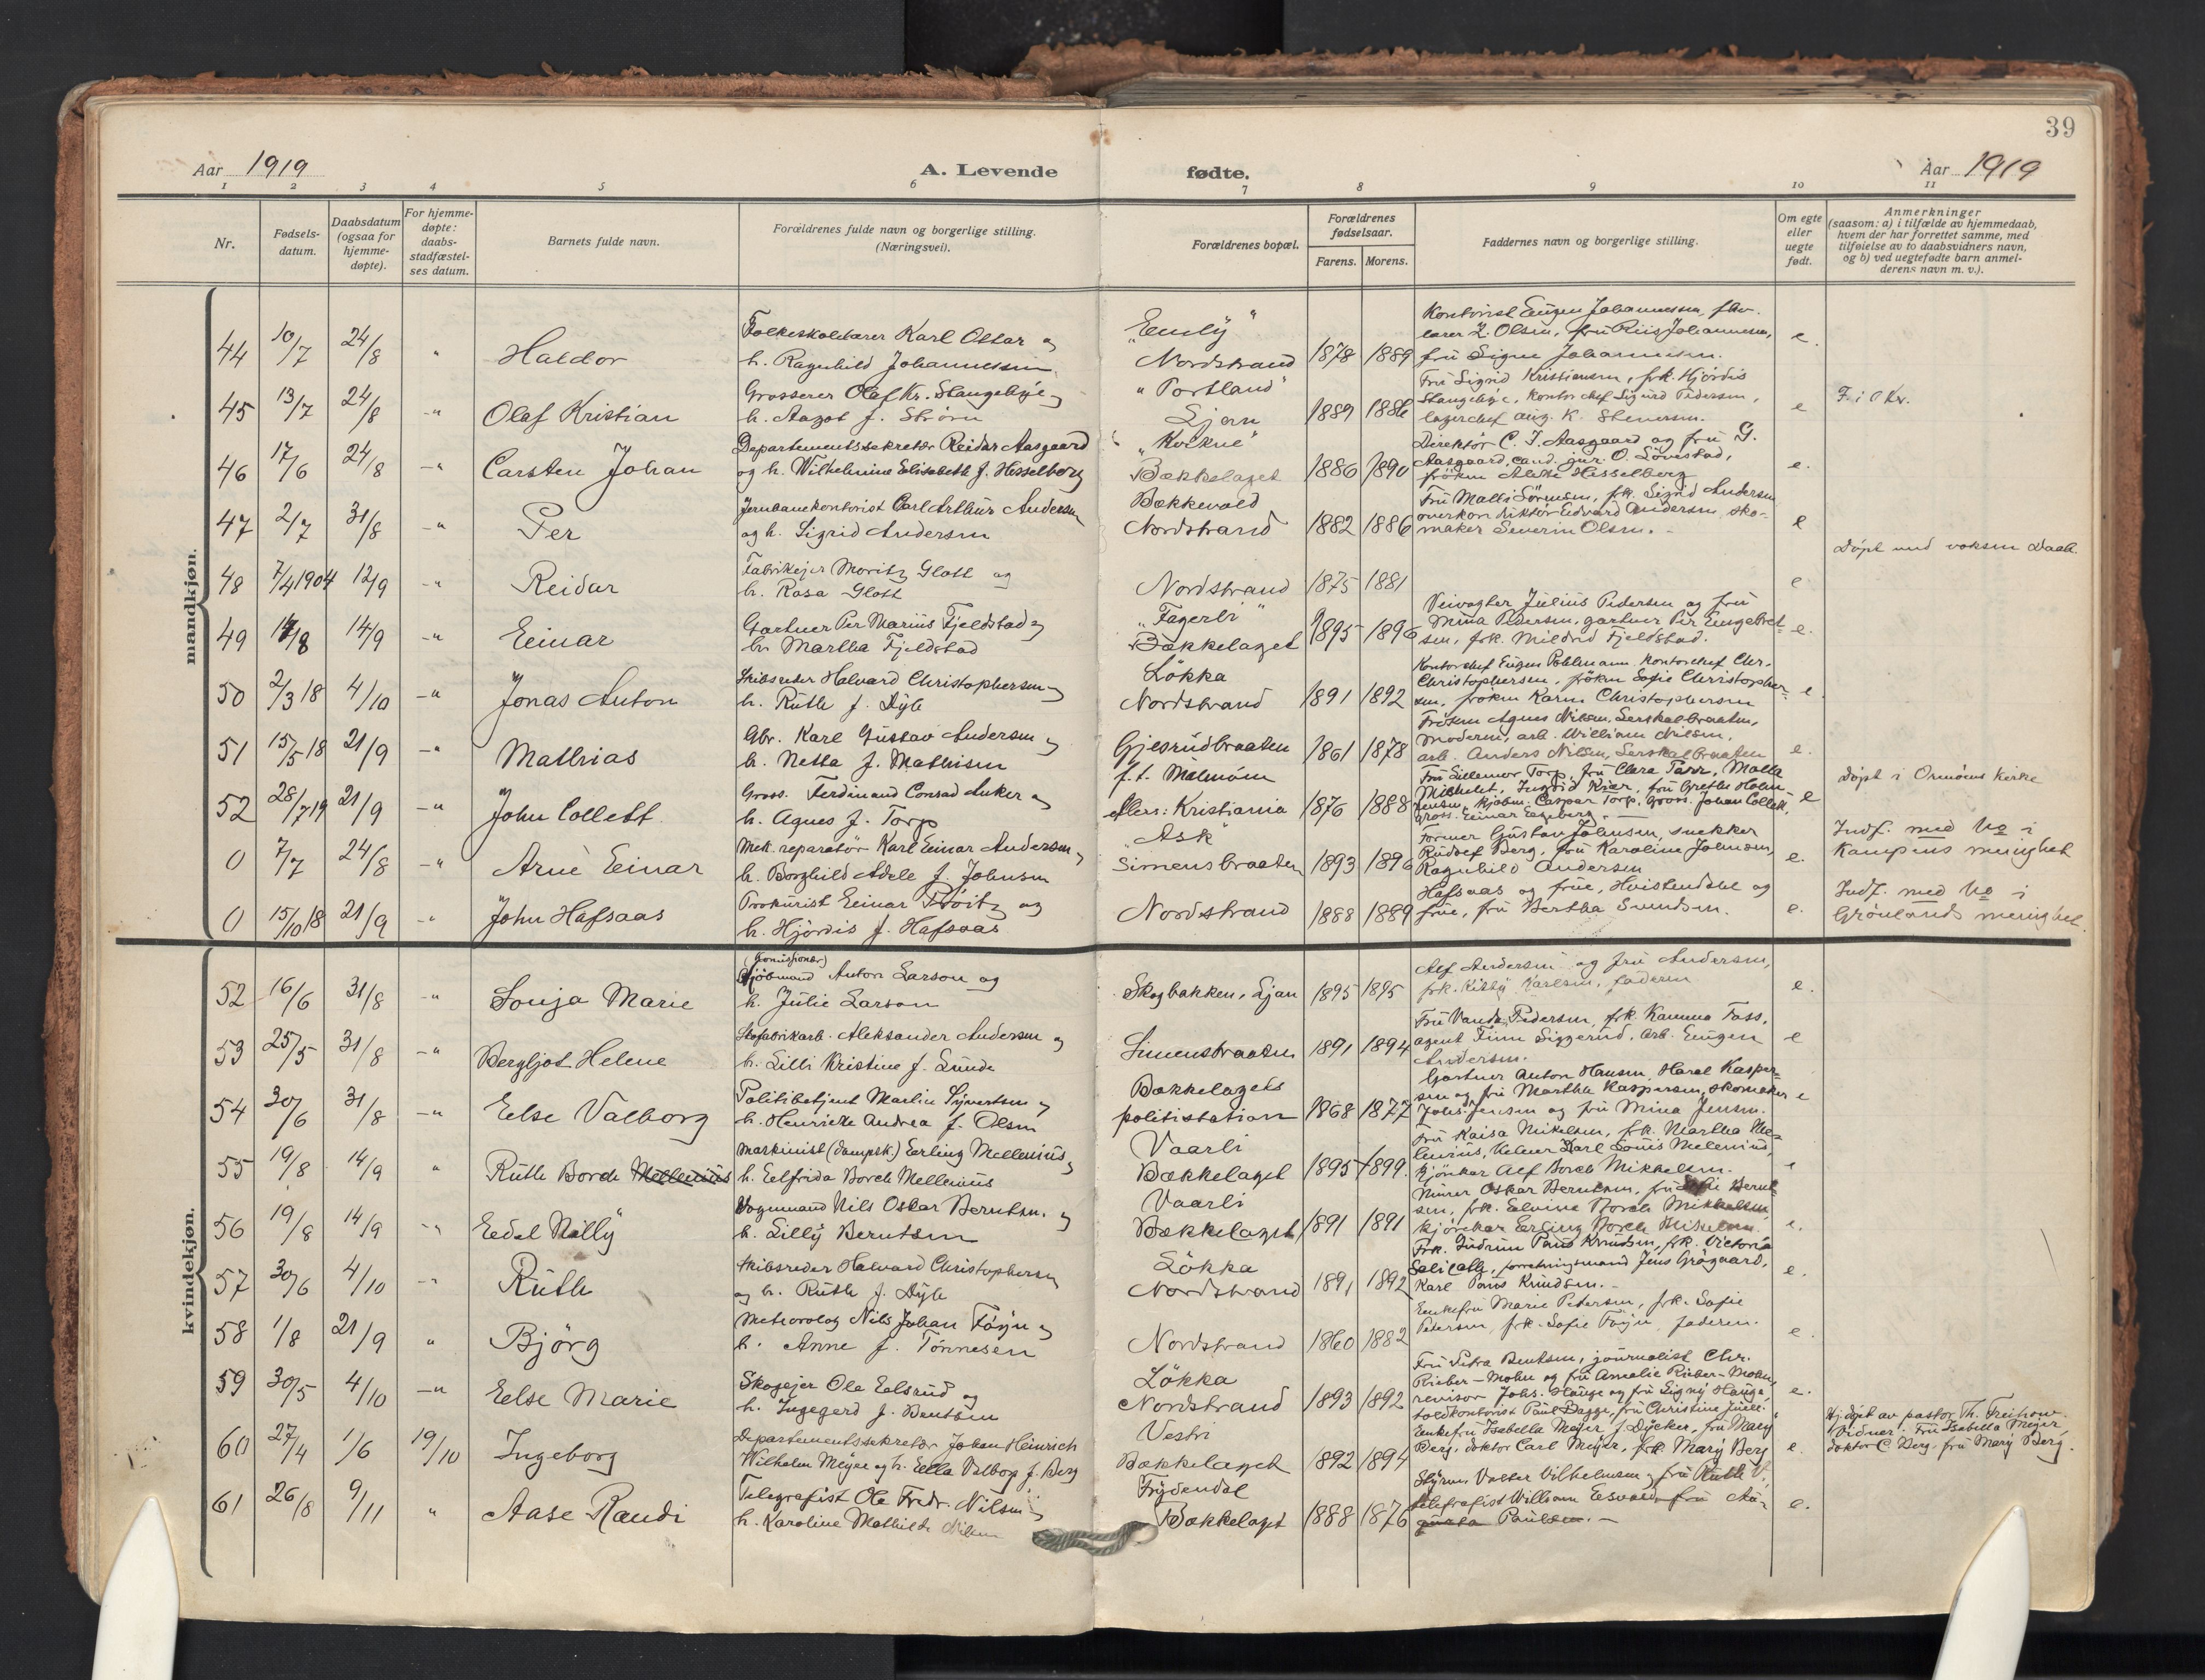 39
Aar 1919 A. Levende fødte. Aar 1919
1 2 3 4 5 6 7 8 9 10 11
Nr.
Fødsels-
datum.
Daabsdatum
(ogsaa for
hjemme-
døpte).
For hjemme-
døpte:
daabs-
stadfæstel-
ses datum.
Barnets fulde navn.
Forældrenes fulde navn og borgerlige stilling.
(Næringsvei).
Forældrenes bopæl.
Forældrenes
fødselsaar.
Farens. Morens.
Faddernes navn og borgerlige stilling.
Om egte
eller
uegte
født.
Anmerkninger
(saasom: a) i tilfælde av hjemmedaab,
hvem der har forrettet samme, med
tilføielse av to daabsvidners navn,
og b) ved uegtefødte barn anmel-
derens navn m. v.).
mandkjøn.
44 10/7 24/8 " Haldor
Folkeskolelærer Karl Oskar og
h. Ragnhild Johannessen
"Emly"
Nordstrand 1878 1889
Kontorist Eugen Johannessen,
lærer L. Olsen, fru Riis Johannessen,
fru Signe Johannessen. e.
45 13/7 24/8 -" Olaf Kristian
Grosserer Olaf Kr. Stangebye og
h. Aagot f. Strøm
"Portland"
Ljan 1889 1886
Fru Sigrid Kristiansen, frk. Hjördis
Stangebye, Kontorchef Sigurd Pedersen,
lagerchef aug. K. Stenersen. e
F. i O Kr.
46 17/6 24/8 -" Carsten Johan
Departementssekretær Reidar Aasgaard
og h. Wilhelmine Elisabeth f. Hesselberg
"Kvikne"
Bækkelaget 1886 1890
Direktör C. J. Aasgaard og fru G.
Aasgaard, cand. jur. O. Lövestad,
fröken Hesselberg e.
47 2/7 31/8 -" Per
Jernbanekontorist Carl Arthur Andersen
og h. Sigrid Andersen
Bækkevold
Nordstrand 1882 1886
Fru Malli Sörensen, frk. Sigrid Andersen
overkonduktör Edvard Andersen, sko-
maker Severin Olsen. - e
48 7/4 1904 12/9 -" Reidar
Fabrikejer Moritz Glott og
h. Rosa Glott
Nordstrand 1875 1881 e
Döpt med voksen Daab.
49 14/8 14/9 -" Einar
Gartner Per Marius Fjeldstad og
h. Martha Fjeldstad
"Fagerli"
Bækkelaget 1895 1896
Veivogter Julius Pedersen og fru
Mina Pedersen, gartner Per Engebret-
sen, frk. Mildrid Fjeldstad. e.
50 2/3 18 4/10 -" Jonas Anton
Skibsreder Halvard Christophersen og
h. Ruth f. Dyb
Lökka
Nordstrand 1891 1892
Kontorchef Eugen Pohlmann, Kontorchef Chr.
Christophersen, fröken Sofie Christopher-
sen, fröken Karen Christophersen e.
51 15/5 18 21/9 -" Mathias
Gbr. Karl Gustav Andersen og
h. Netta f. Mathisen
Gjersrudbraaten 1861 1878
Fröken Agnes Nilsen, Lerskalbraaten,
moderen, arb. William Nilsen,
arb. Anders Nilsen, Lerskalbraaten e.
52 28/7 19 21/9 -" John Collett
Gross. Ferdinand Conrad Anker og
h. Agnes f. Torp
f. t. Malmöen
ellers: Kristiania 1876 1888
Fru Lillemor Torp, fru Clara Parr, Malla
Michelet, Ingrid Kiær, fru Grethe Holm-
Jensen, kjøbm. Caspar Torp, Gross. Johan Collett,
Gross. Einar Engeberg. - e
Döpt i Ormöens Kirke
0 7/7 24/8 -" Arne Einar
Mek. reparatør Karl Einar Andersen og
h. Borghild Adele f. Johnsen
"Ask"
Simensbraaten 1893 1896
Former Gustav Johnsen, snekker
Rudolf Berg, fru Karoline Johnsen,
Ragnhild Andersen e.
Indf. med No i
Kampens menighet
0 15/10 18 21/9 -" John Hafsaas
Prokurist Einar Röitz og
h. Hjördis f. Hafsaas
Nordstrand 1888 1889
Hafsaas og frue, Hvistendahl og
frue, fru Bertha Svendsen. e.
Indf. med No i
Grönlands menighet.
kvindekjøn.
52 16/6 31/8 -" Sonja Marie
Kjöbmand Anton Larson og
h. Julie Larson
Skogbakken, Ljan 1895 1895
Alf Andersen og fru Andersen,
frk. Kitty Karlsen, faderen e.
53 25/5 31/8 -" Bergljot Helene
Skofabrikarb. Aleksander Andersen og
h. Lilli Kristine f. Lunde
Simensbraaten 1891 1894
Fru Vanda Pedersen, frk. Kamma Foss,
agent Finn Siggerud, arb. Eugen
Andersen. e
54 30/6 31/8 -" Else Valborg
Politibetjent Martin Syvertsen og
h. Henrikke Andrea f. Olsen
Bækkelagets
politistation 1868 1877
Gartner Anton Hansen, Harel Kasper-
sen og fru Martha Kaspersen, skomaker
Johs. Jensen og fru Mina Jensen. e
55 19/8 14/9 " Ruth Borch Mellenius
Maskinist (dampsk.) Erling Mellenius og
h. Elfrida Borch Mellenius
Vaarli
Bækkelaget 1895 1899
Fru Kaisa Mikelsen, frk. Martha Me-
lenius, Kelner Karl Louis Mellenius,
kjörekar Alf Borch Mikkelsen.
56 19/8 14/9 -" Edel Nilly
Vognmand Nils Oskar Berntsen og
h. Lilly Berntsen
Vaarli
Bækkelaget 1891 1891
Murer Oskar Berntsen, fru Bernt-
sen, frk. Elvine Borch Mikkelsen,
kjörekar Erling Borch Mikkelsen. e.
57 30/6 4/10 -" Ruth
Skibsreder Halvard Christophersen
og h. Ruth f. Dyb
Lökka
Nordstrand 1891 1892
Frk. Gudrun Paus Knudsen, frk. Victoria
Salicath, forretningsmand Jens Grögaard,
Karl Paus Knudsen. - e.
58 1/8 21/9 " Björg
Meteorolog Nils Johan Föyn og
h. Anne f. Tønnesen
Nordstrand 1860 1882
Enkefru Marie Petersen, frk. Sofie
Petersen, frk. Sofie Föyn, faderen. e.
59 30/5 4/10 -" Else Marie
Skogejer Ole Elsrud og
h. Ingegerd f. Bentsen
Lökka
Nordstrand 1893 1892
Fru Petra Bentsen, journalist Chr.
Rieber-Mohn og fru Amalie Rieber-Mohn,
revisor Johs. Hauge og fru Signy Hauge,
toldkontorist Paul Bagge, fru Christine Juell. e.
60 27/4 1/6 19/10 Ingeborg
Departementssekretær Johan Heinrich
Wilhelm Meyer og h. Ella Valborg f. Berg
Vestri
Bækkelaget 1892 1894
Enkefru Isabella Meyer f. Dycker, fru Mary
Berg, doktor Carl Meyer, frk. Mary Berg e.
Hj. döpt av pastor Th. Freihow.
Vidner: Fru Isabella Meyer
doktor C Berg, fru Mary Berg.
61 26/8 9/11 " Aase Randi
Telegrafist Ole Fredr. Nilsen og
h. Karoline Mathilde Nilsen
Frydendal
Bækkelaget 1888 1876
Styrm. Valter Vilhelmsen og fru Ruth V.,
telegrafist William Esvald, fru Au-
gusta Paulsen. - e.